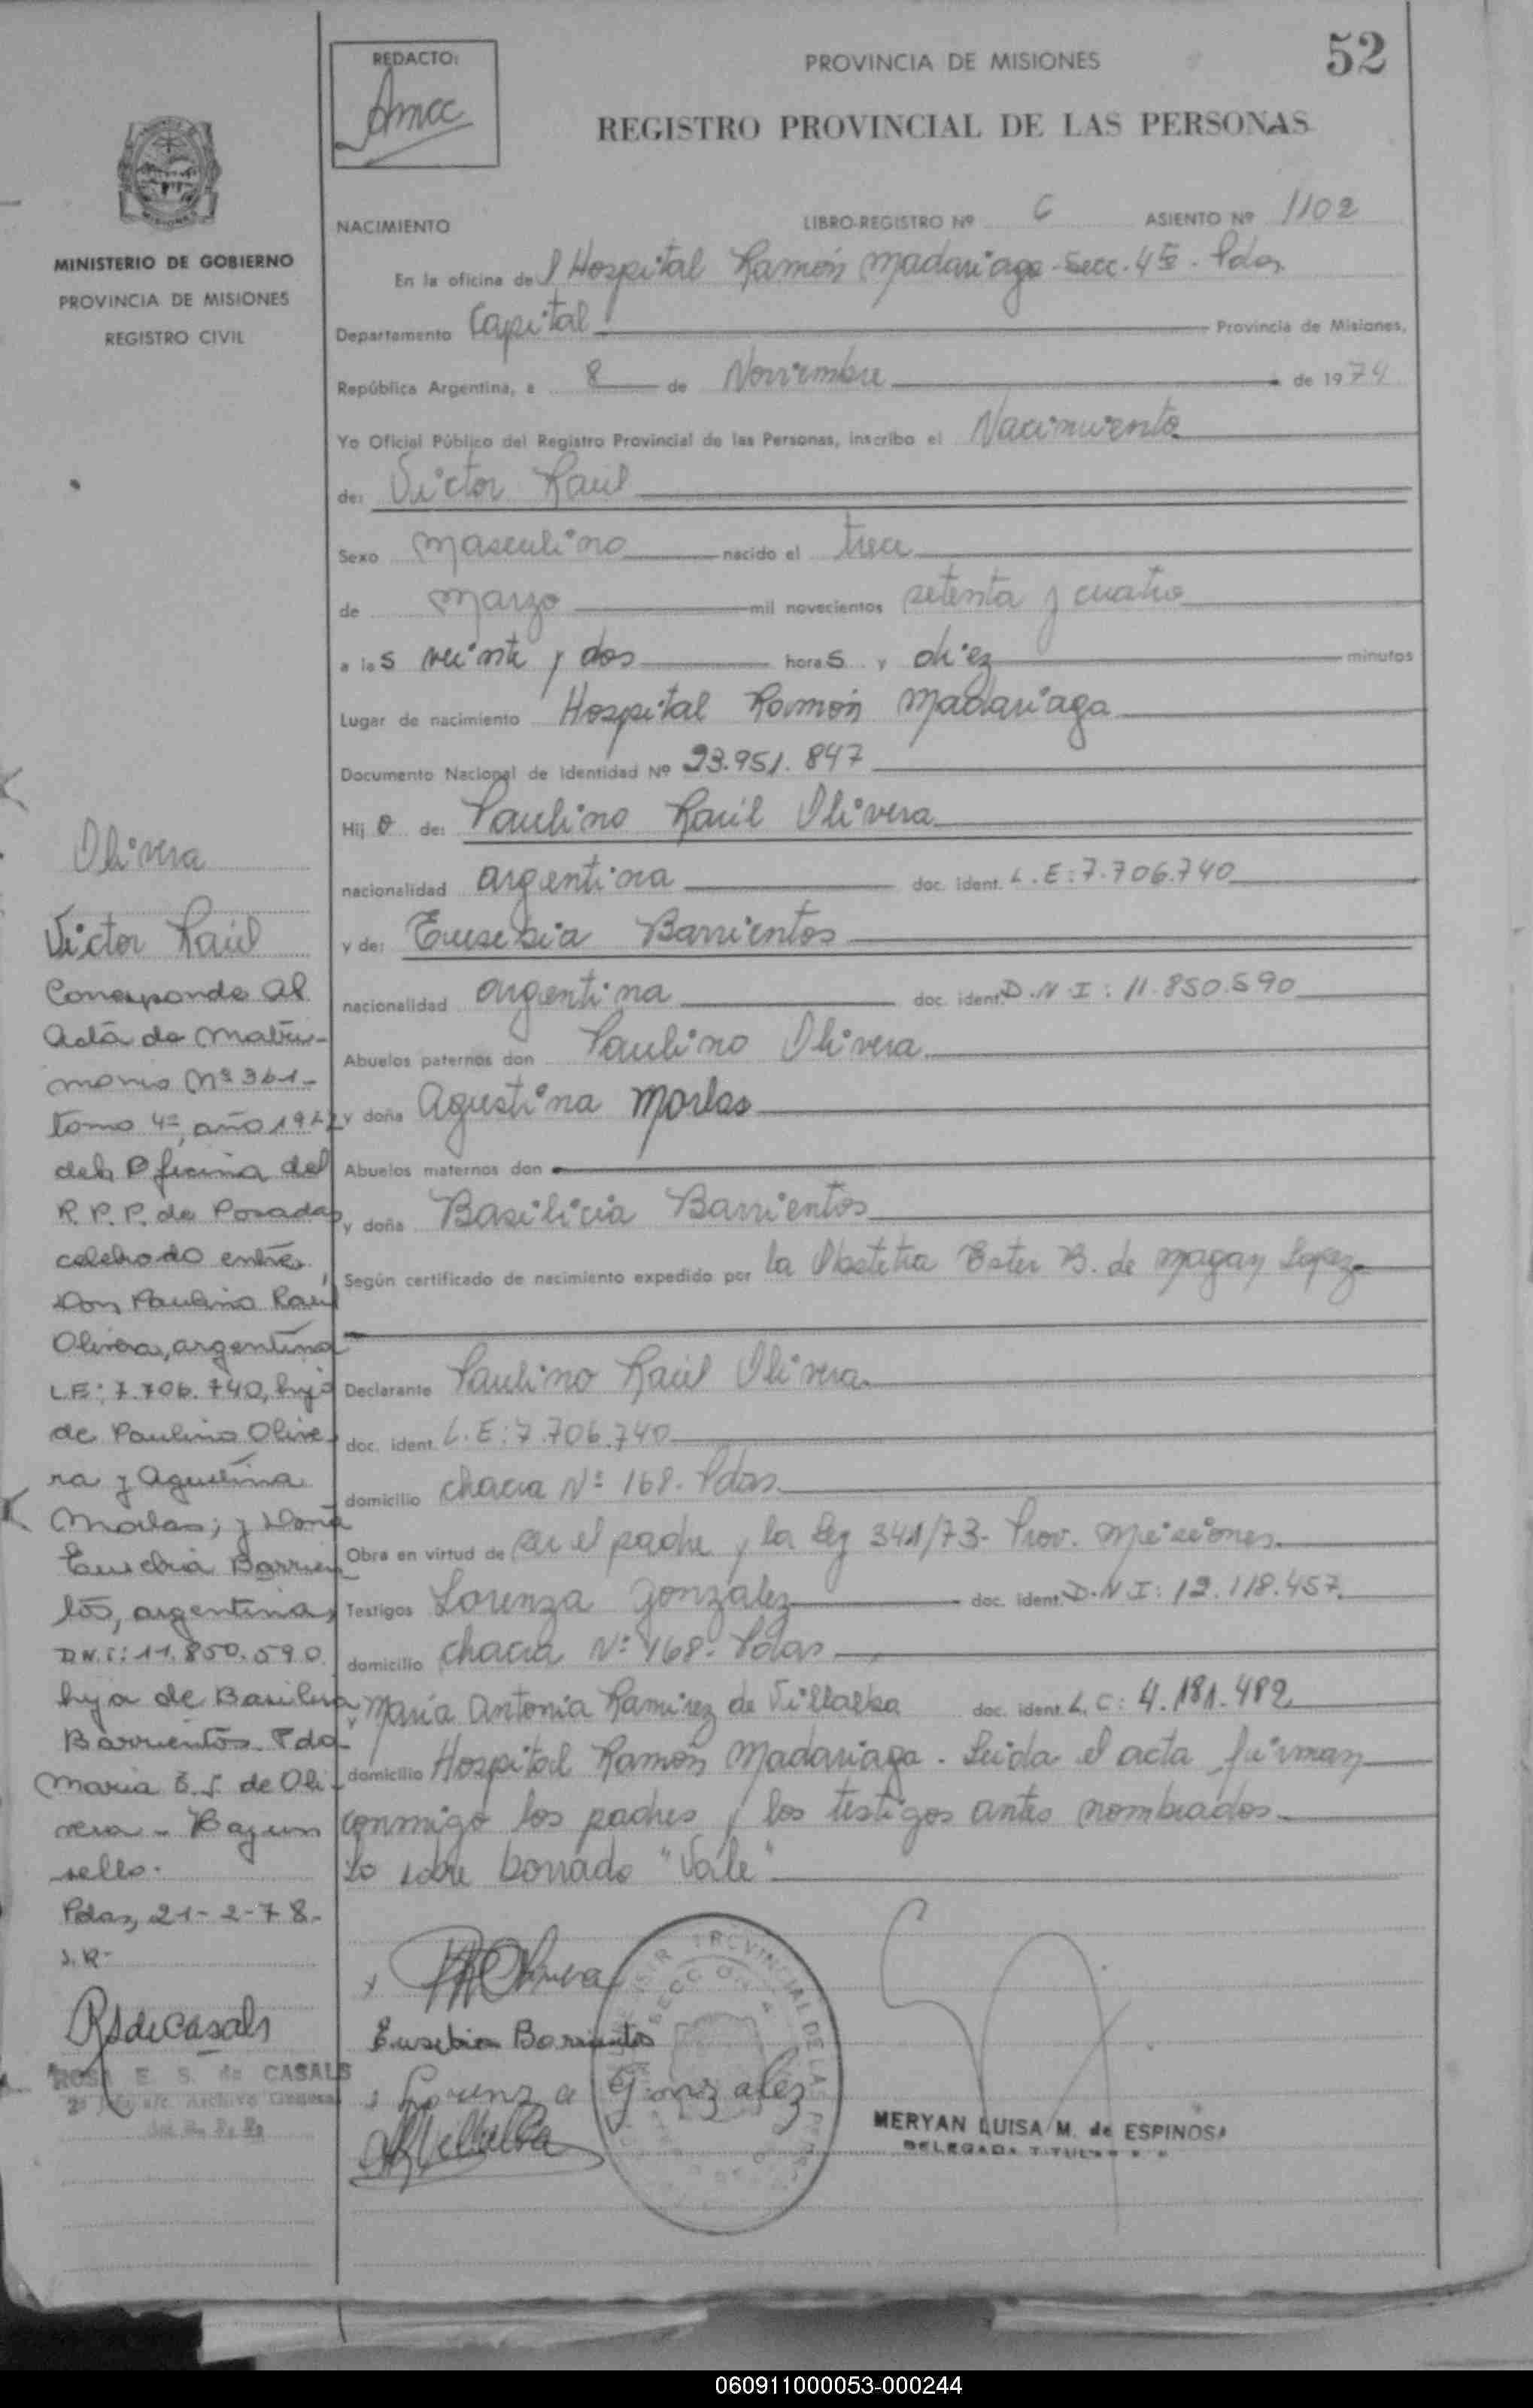 REDACTO:
PROVINCIA DE MISIONES
52
REGISTRO PROVINCIAL DE LAS PERSONAS
NACIMIENTO
LIBRO-REGISTRO Nº 6 ASIENTO Nº 1102
En la oficina del Hospital Ramón Madariaga - Secc. 4ta - Pdas
Departamento Capital Provincia de Misiones,
República Argentina, a 8 de Noviembre de 1974
Yo Oficial Público del Registro Provincial de las Personas, inscribo el Nacimiento
de: Victor Raúl
Sexo masculino nacido el trece
de marzo mil novecientos setenta y cuatro
a las veinte y dos horas y diez minutos
Lugar de nacimiento Hospital Ramón Madariaga
Documento Nacional de Identidad Nº 23.951.847
Hijo de: Paulino Raúl Olivera
nacionalidad argentina doc. ident. L.E: 7.706.740
y de: Eusebia Barrientos
nacionalidad argentina doc. ident. D.N.I: 11.850.590
Abuelos paternos don Paulino Olivera
y doña Agustina Morlas
Abuelos maternos don
y doña Basilicia Barrientos
Según certificado de nacimiento expedido por la Obstetra Ester B. de Magan Lopez
Declarante Paulino Raúl Olivera
doc. ident. L.E: 7.706.740
domicilio chacra Nº 168. Pdas.
Obra en virtud de ser el padre y la Ley 341/73- Prov. Misiones.
Testigos Lorenza Gonzalez doc. ident. D.N.I: 12.118.457.
domicilio chacra Nº 168- Pdas
y María Antonia Ramirez de Villalba doc. ident. L.C: 4.181.482
domicilio Hospital Ramón Madariaga. Leida el acta firman
conmigo los padres y los testigos antes nombrados.
Lo sobre borrado "Vale"
Eusebia Barrientos
Lorenza Gonzalez
MERYAN LUISA M. de ESPINOSA
DELEGADA TITULAR
MINISTERIO DE GOBIERNO
PROVINCIA DE MISIONES
REGISTRO CIVIL
Olivera
Victor Raúl
Corresponde al
Acta de Matri-
monio Nº 361-
tomo 4º, año
de la Oficina del
R.P.P. de Posadas
celebrado entre
Don Paulino Raúl
Olivera, argentino
L.E: 7.706.740, hijo
de Paulino Olive
ra y Agustina
Morlas; y Doña
Eusebia Barrien
tos, argentina,
D.N.I: 11.850.590
hija de Basilicia
Barrientos. Fdo
Maria E. S. de Oli-
vera - Hay un
sello.
Pdas, 21-2-78-
S.R-
RSdeCasals
ROSA E. S. de CASALS
060911000053-000244